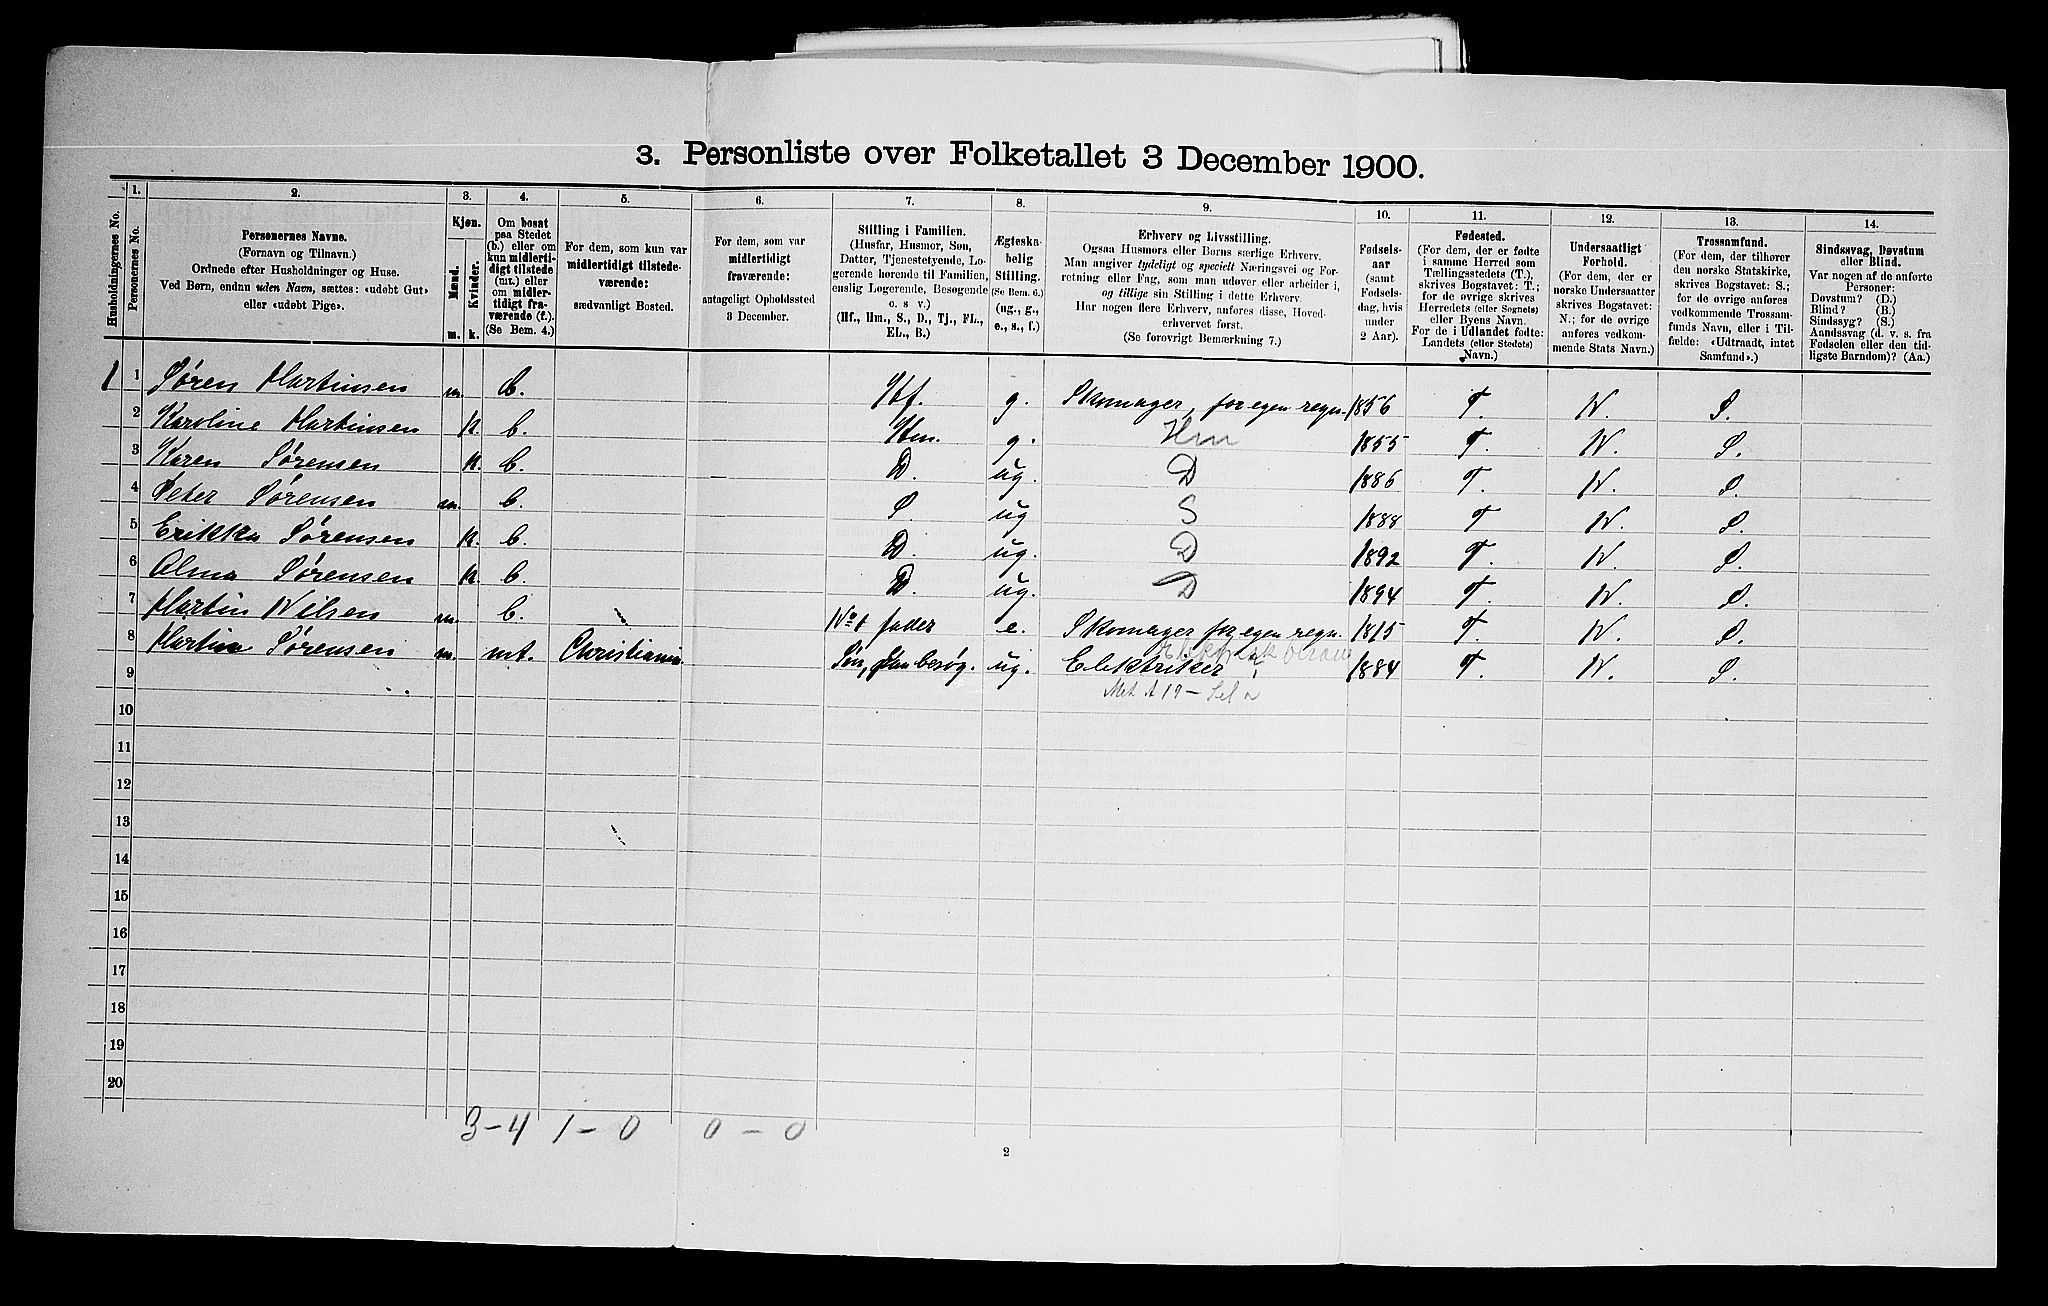 3. Personliste over Folketallet 3 December 1900.
1. 2. 3. 4. 5. 6. 7. 8. 9. 10. 11. 12. 13. 14.
Husholdningernes No.
Personernes No.
Personernes Navne.
(Fornavn og Tilnavn.)
Ordnede efter Husholdninger og Huse.
Ved Børn, endnu uden Navn, sættes: «udøbt Gut»
eller «udøbt Pige».
Kjøn.
Mænd.
Kvinder.
m. k.
Om bosat
paa Stedet
(b.) eller om
kun midlerti-
digt tilstede
(mt.) eller
om midler-
tidigt fra-
værende (f.).
(Se Bem. 4.)
For dem, som kun var
midlertidigt tilstede-
værende:
sædvanligt Bosted.
For dem, som var
midlertidigt
fraværende:
antageligt Opholdssted
3 December.
Stilling i Familien.
(Husfar, Husmor, Søn,
Datter, Tjenestetyende, Lo-
gerende hørende til Familien,
enslig Logerende, Besøgende
o. s v.)
(Hf., Hm., S., D., Tj., FL.,
EL., B.)
Ægteska-
belig
Stilling.
(Se Bem. 6.)
(ug., g.,
e., s., f.)
Erhverv og Livsstilling.
Ogsaa Husmors eller Børns særlige Erhverv.
Man angiver tydeligt og specielt Næringsvei og For-
retning eller Fag, som man udøver eller arbeider i,
og tillige sin Stilling i dette Erhverv.
Har nogen flere Erhverv, anføres disse, Hoved-
erhvervet først.
(Se forøvrigt Bemærkning 7.)
Fødsels-
aar
(samt
Fødsels-
dag, hvis
under
2 Aar).
Fødested.
(For dem, der er fødte
i samme Herred som
Tællingsstedets (T.),
skrives Bogstavet: T.;
for de øvrige skrives
Herredets (eller Sognets)
eller Byens Navn.
For de i Udlandet fødte:
Landets (eller Stedets)
Navn.)
Undersaatligt
Forhold.
(For dem, der er
norske Undersaatter
skrives Bogstavet:
N.; for de øvrige
anføres vedkom-
mende Stats Navn.)
Trossamfund.
(For dem, der tilhører
den norske Statskirke,
skrives Bogstavet: S.;
for de øvrige anføres
vedkommende Trossam-
funds Navn, eller i Til-
fælde: «Udtraadt, intet
Samfund».)
Sindssvag, Døvstum
eller Blind.
Var nogen af de anførte
Personer:
Døvstum? (D.)
Blind? (B.)
Sindssyg? (S.)
Aandssvag (d. v. s. fra
Fødselen eller den tid-
ligste Barndom)? (Aa.)
1 1 Søren Martinsen m. b. Hf. g. Skomager, for egen regn. 1856 T. N. S.
2 Karoline Martinsen k. b. Hm. g. Hm 1855 T. N. S.
3 Karen Sørensen k. b. D. ug. D 1886 T. N. S.
4 Peter Sørensen m. b. S. ug S 1888 T N. S.
5 Erikka Sørensen k. b. D. ug. D 1892 T. N. S.
6 Alma Sørensen k. b. D. ug. D 1894 T. N. S.
7 Martin Nilsen m. b. No 1 fader e. Skomager for egen regn. 1815 T. N. S.
8 Martin Sørensen m. mt. Christiania. Søn, paa besøg. ug. Elektriker 1884 T. N. S.
9
10
11
12
13
14
15
16
17
18
19
20
3 – 4 1 – 0 0 – 0
2